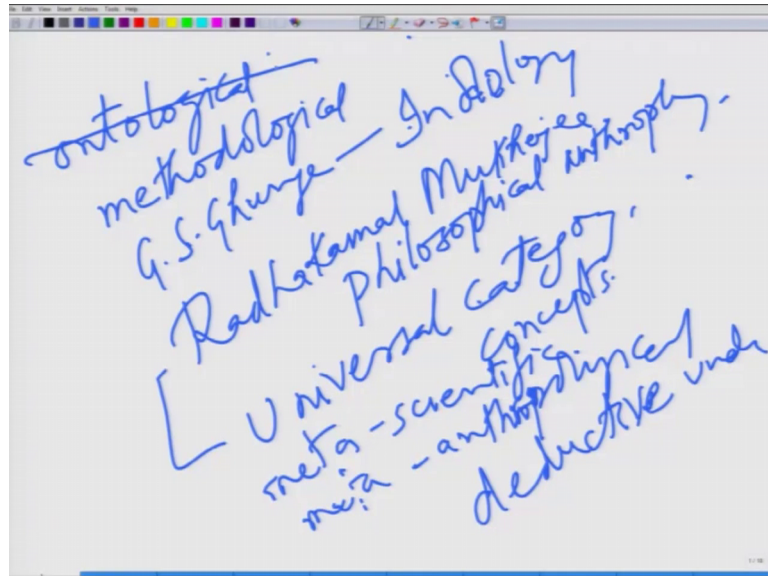 File Edit View Insert Actions Tools Help
ontological
methodological
G.S. Ghurye — Indology
Radhakamal Mukherjee
Philosophical anthroply.
Universal category.
concepts.
meta-scientific
meta-anthropological
deductive unde
1/10